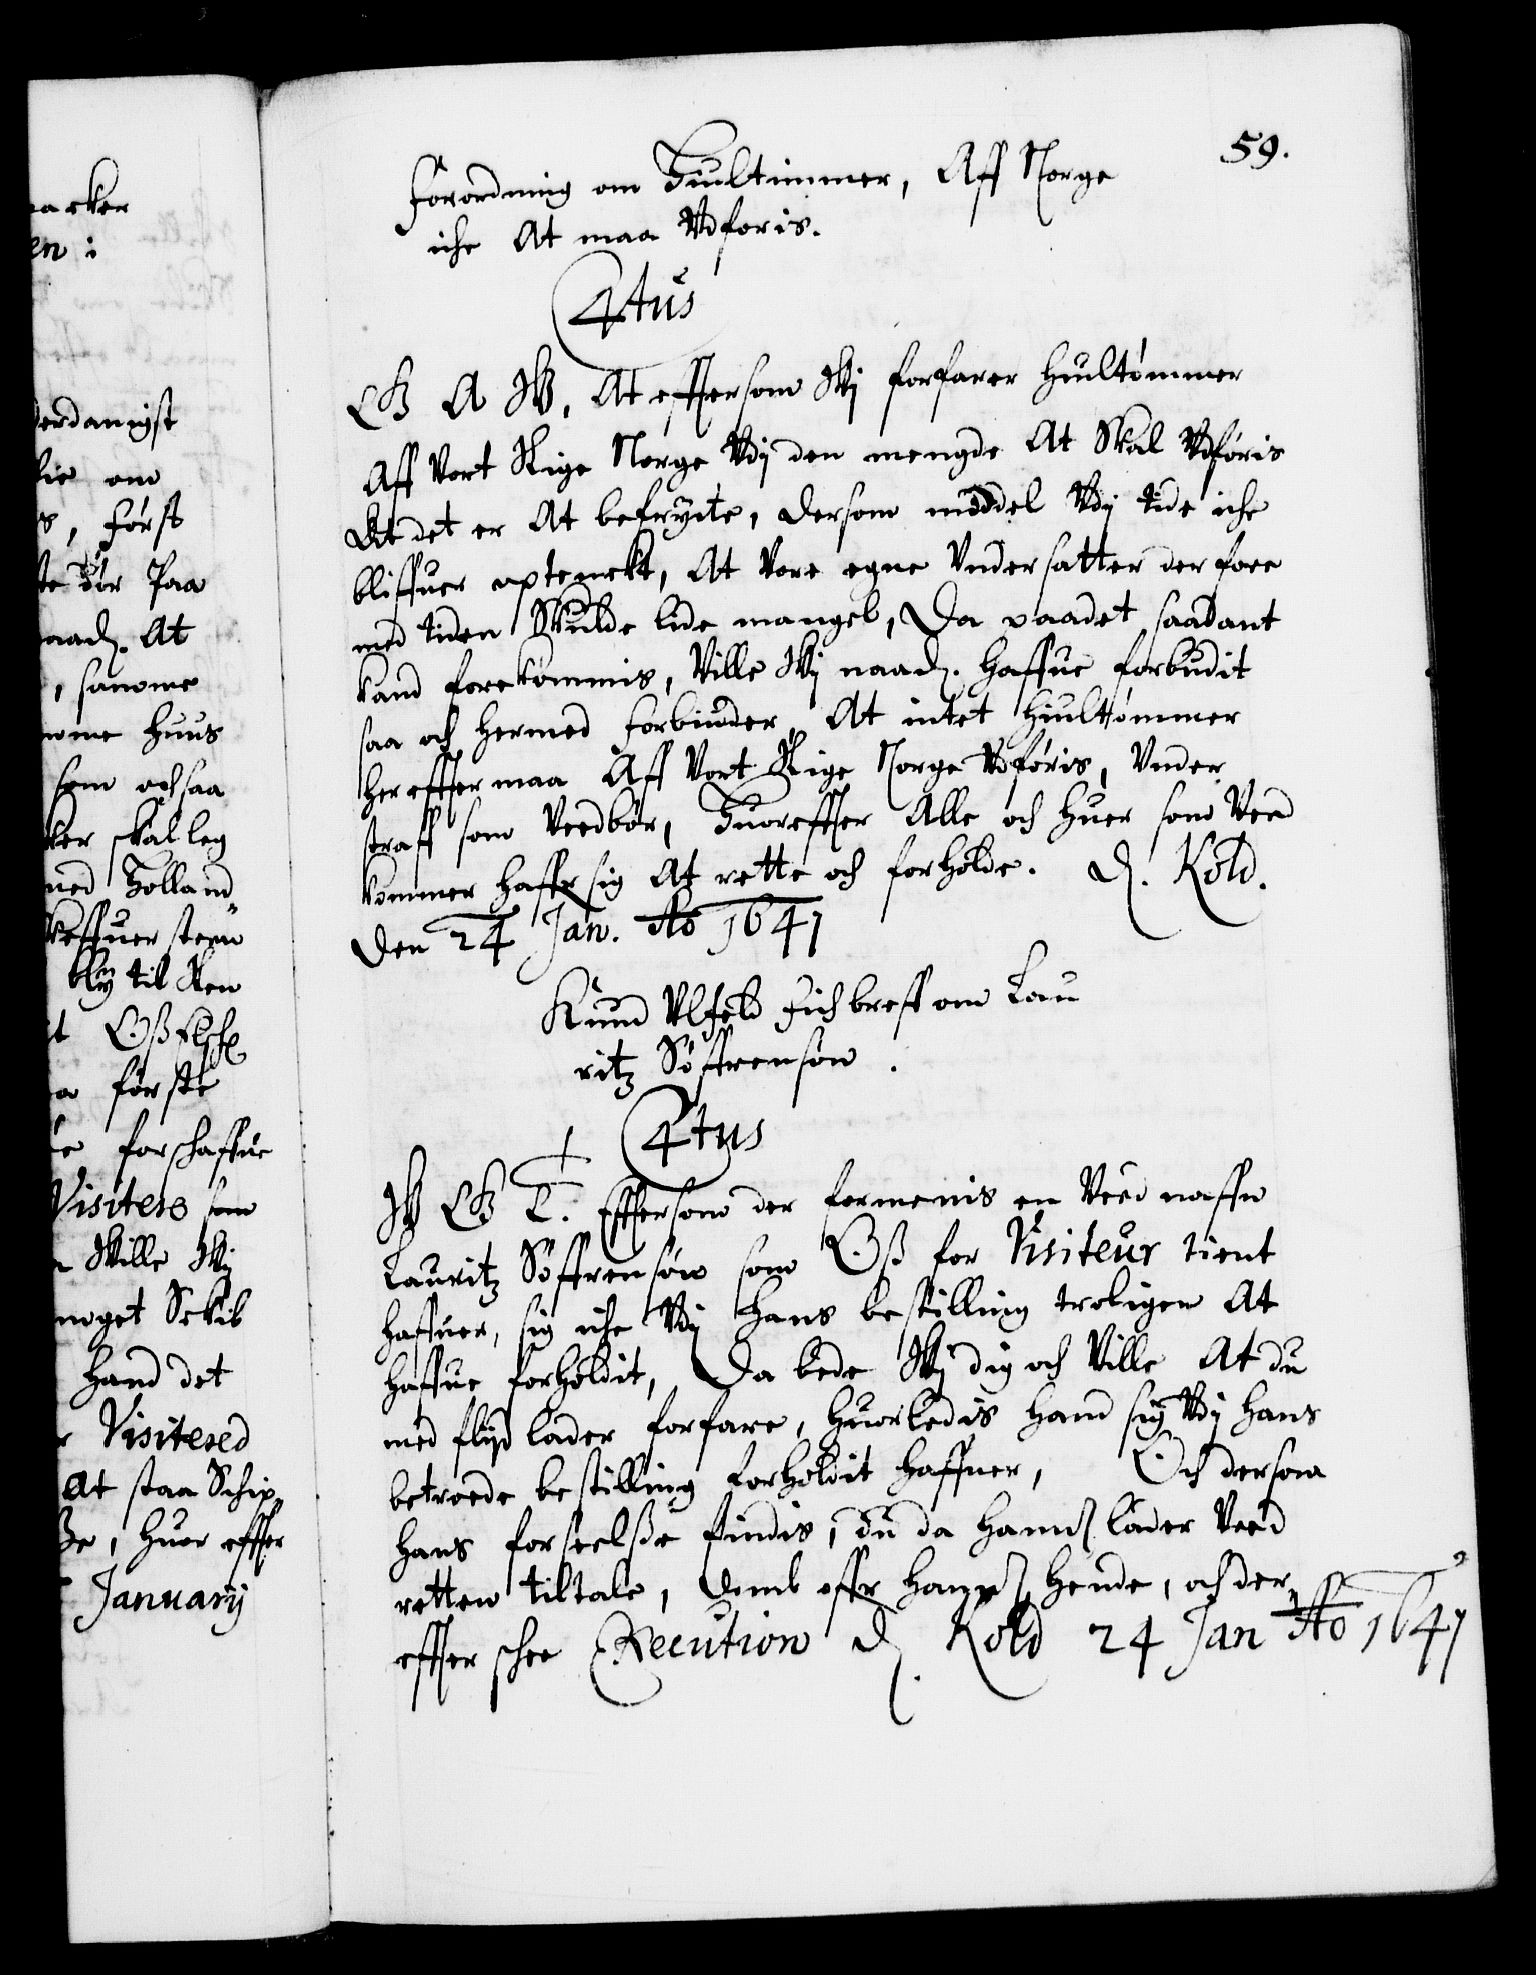 59.
Forordning om Hiultimmer, Aff Norge
iche At maa Vdføris.
C4tus
G A W, At efftersom Wij forfarer Hiultømmer
Aff Vort Rige Norge Vdj den mengde At Skal Vdføris
At det er At befrycte, dersom middel Vdj tide iche
bliffuer optenckt, At Vore egne Vndersatter der fore
med tiden Skulde lide mangel, Da paadet saadant
kand forekommis, Ville Wij naad. haffue forbudit
saa och hermed forbiuder, At intet Hiultømmer
hereffter maa Aff Vort Rige Norge Vdføris, Vnder
straff som Veedbør, Huoreffter Alle och huer som Ved
kommer haffr sig At rette och forholde. d. Kold.
Den 24 Jan. Ao 1641
Knud Vlfeld Fich breff om Lau
ritz Søffrensøn.
C4tus
W G T. Efftersom der formenis en Ved naffn
Lauritz Søffrensøn som Oß for Visiteur tient
haffuer, sig iche Vdj hans bestilling troligen At
haffue forholdit, Da bede Wij dig och Ville At du
med flijd lader forfare, huorledis hand sig Vdj hans
betroede bestilling forholdit haffuer, Och dersom
hans forseelße findis, du da hannd lader Ved
retten tiltale, domb offr hannd hende, och der
effter schee Execution d. Kold 24 Jan Ao 1641
acker
en:
derdanigst
lie om
s, først
te dör Paa
naad. At
, samme
mme huus
som ochsaa
ker skal leg
med Holland
skeffuersteen
bly til Ren
t Oß
a første
e forschaffue
Visitere som
Wille Wij
noget Sckib
hand det
r Visitered
At staa Schip
ße, huor effter
January